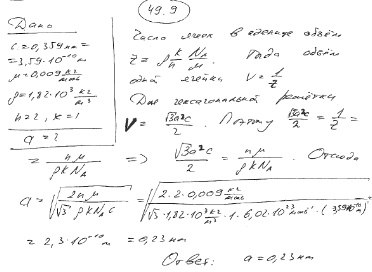 49.9
Дано
c = 0,359 нм =
= 3,59·10⁻¹⁰ м
μ = 0,009 кг/моль
ρ = 1,82·10³ кг/м³
n = 2, k = 1
a = ?
Число ячеек в единице объём
Z = ρ k/n N_A/μ. Тогда объём
одной ячейки V = 1/Z
Для гексагональной решётки
V = √3a²c/2. Поэтому √3a²c/2 = 1/Z =
= nμ/ρkN_A => √3a²c/2 = nμ/ρkN_A. Отсюда
a = √(2nμ/√3 ρkN_A c) = √(2·2·0,009 кг/моль / √3·1,82·10³ кг/м³·1·6,02·10²³ моль⁻¹·(3,59·10⁻¹⁰ м))
= 2,3·10⁻¹⁰ м = 0,23 нм
Ответ: a = 0,23 нм